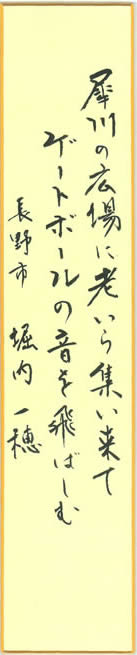 犀川の広場に老いら集い来て
ゲートボールの音を飛ばしむ
長野市 堀内一穂